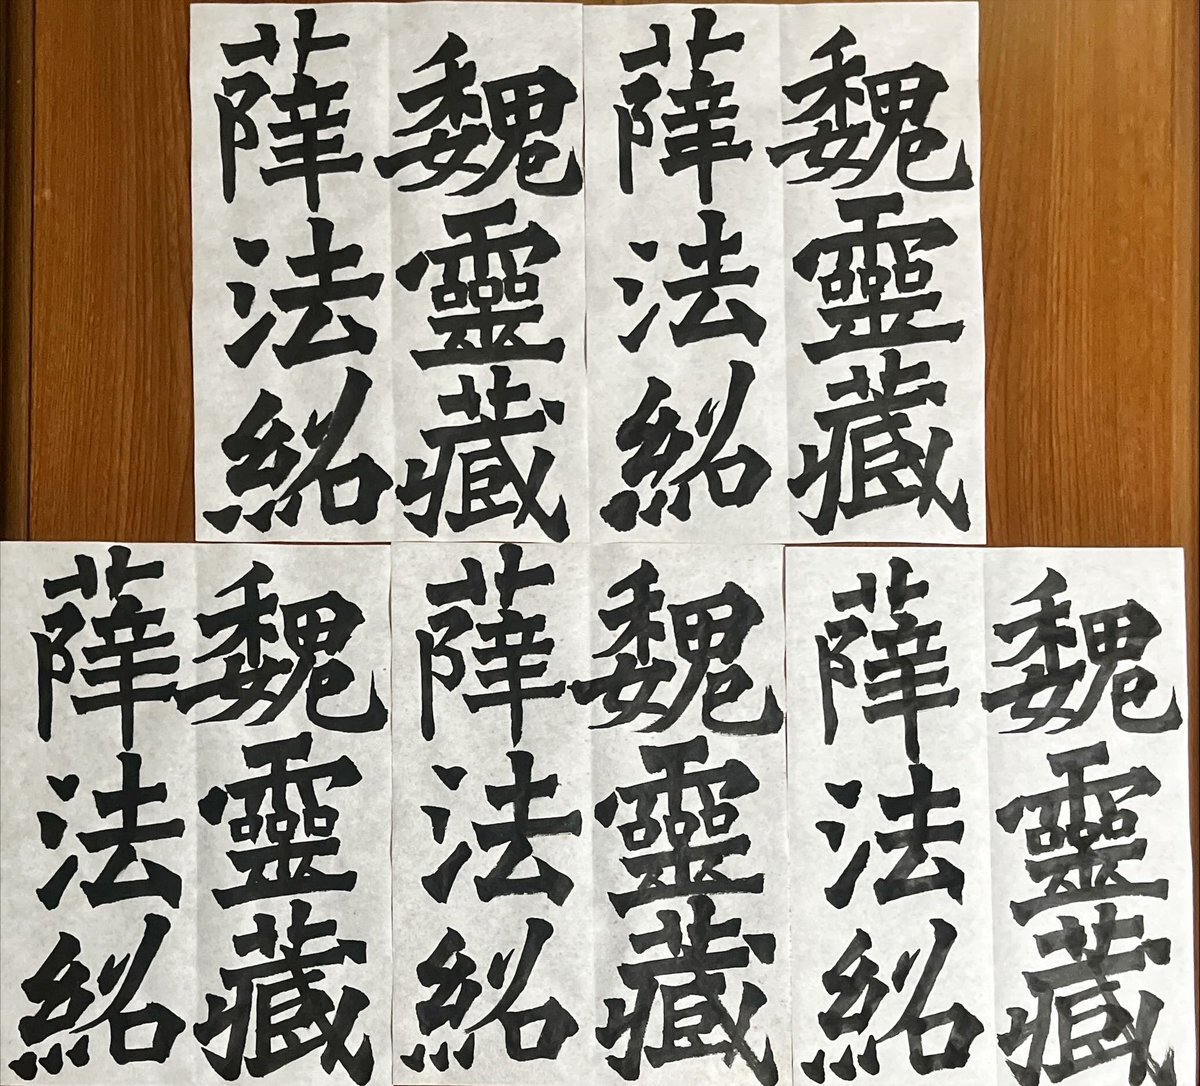 魏靈藏
薛法紹
魏靈藏
薛法紹
魏靈藏
薛法紹
魏靈藏
薛法紹
魏靈藏
薛法紹